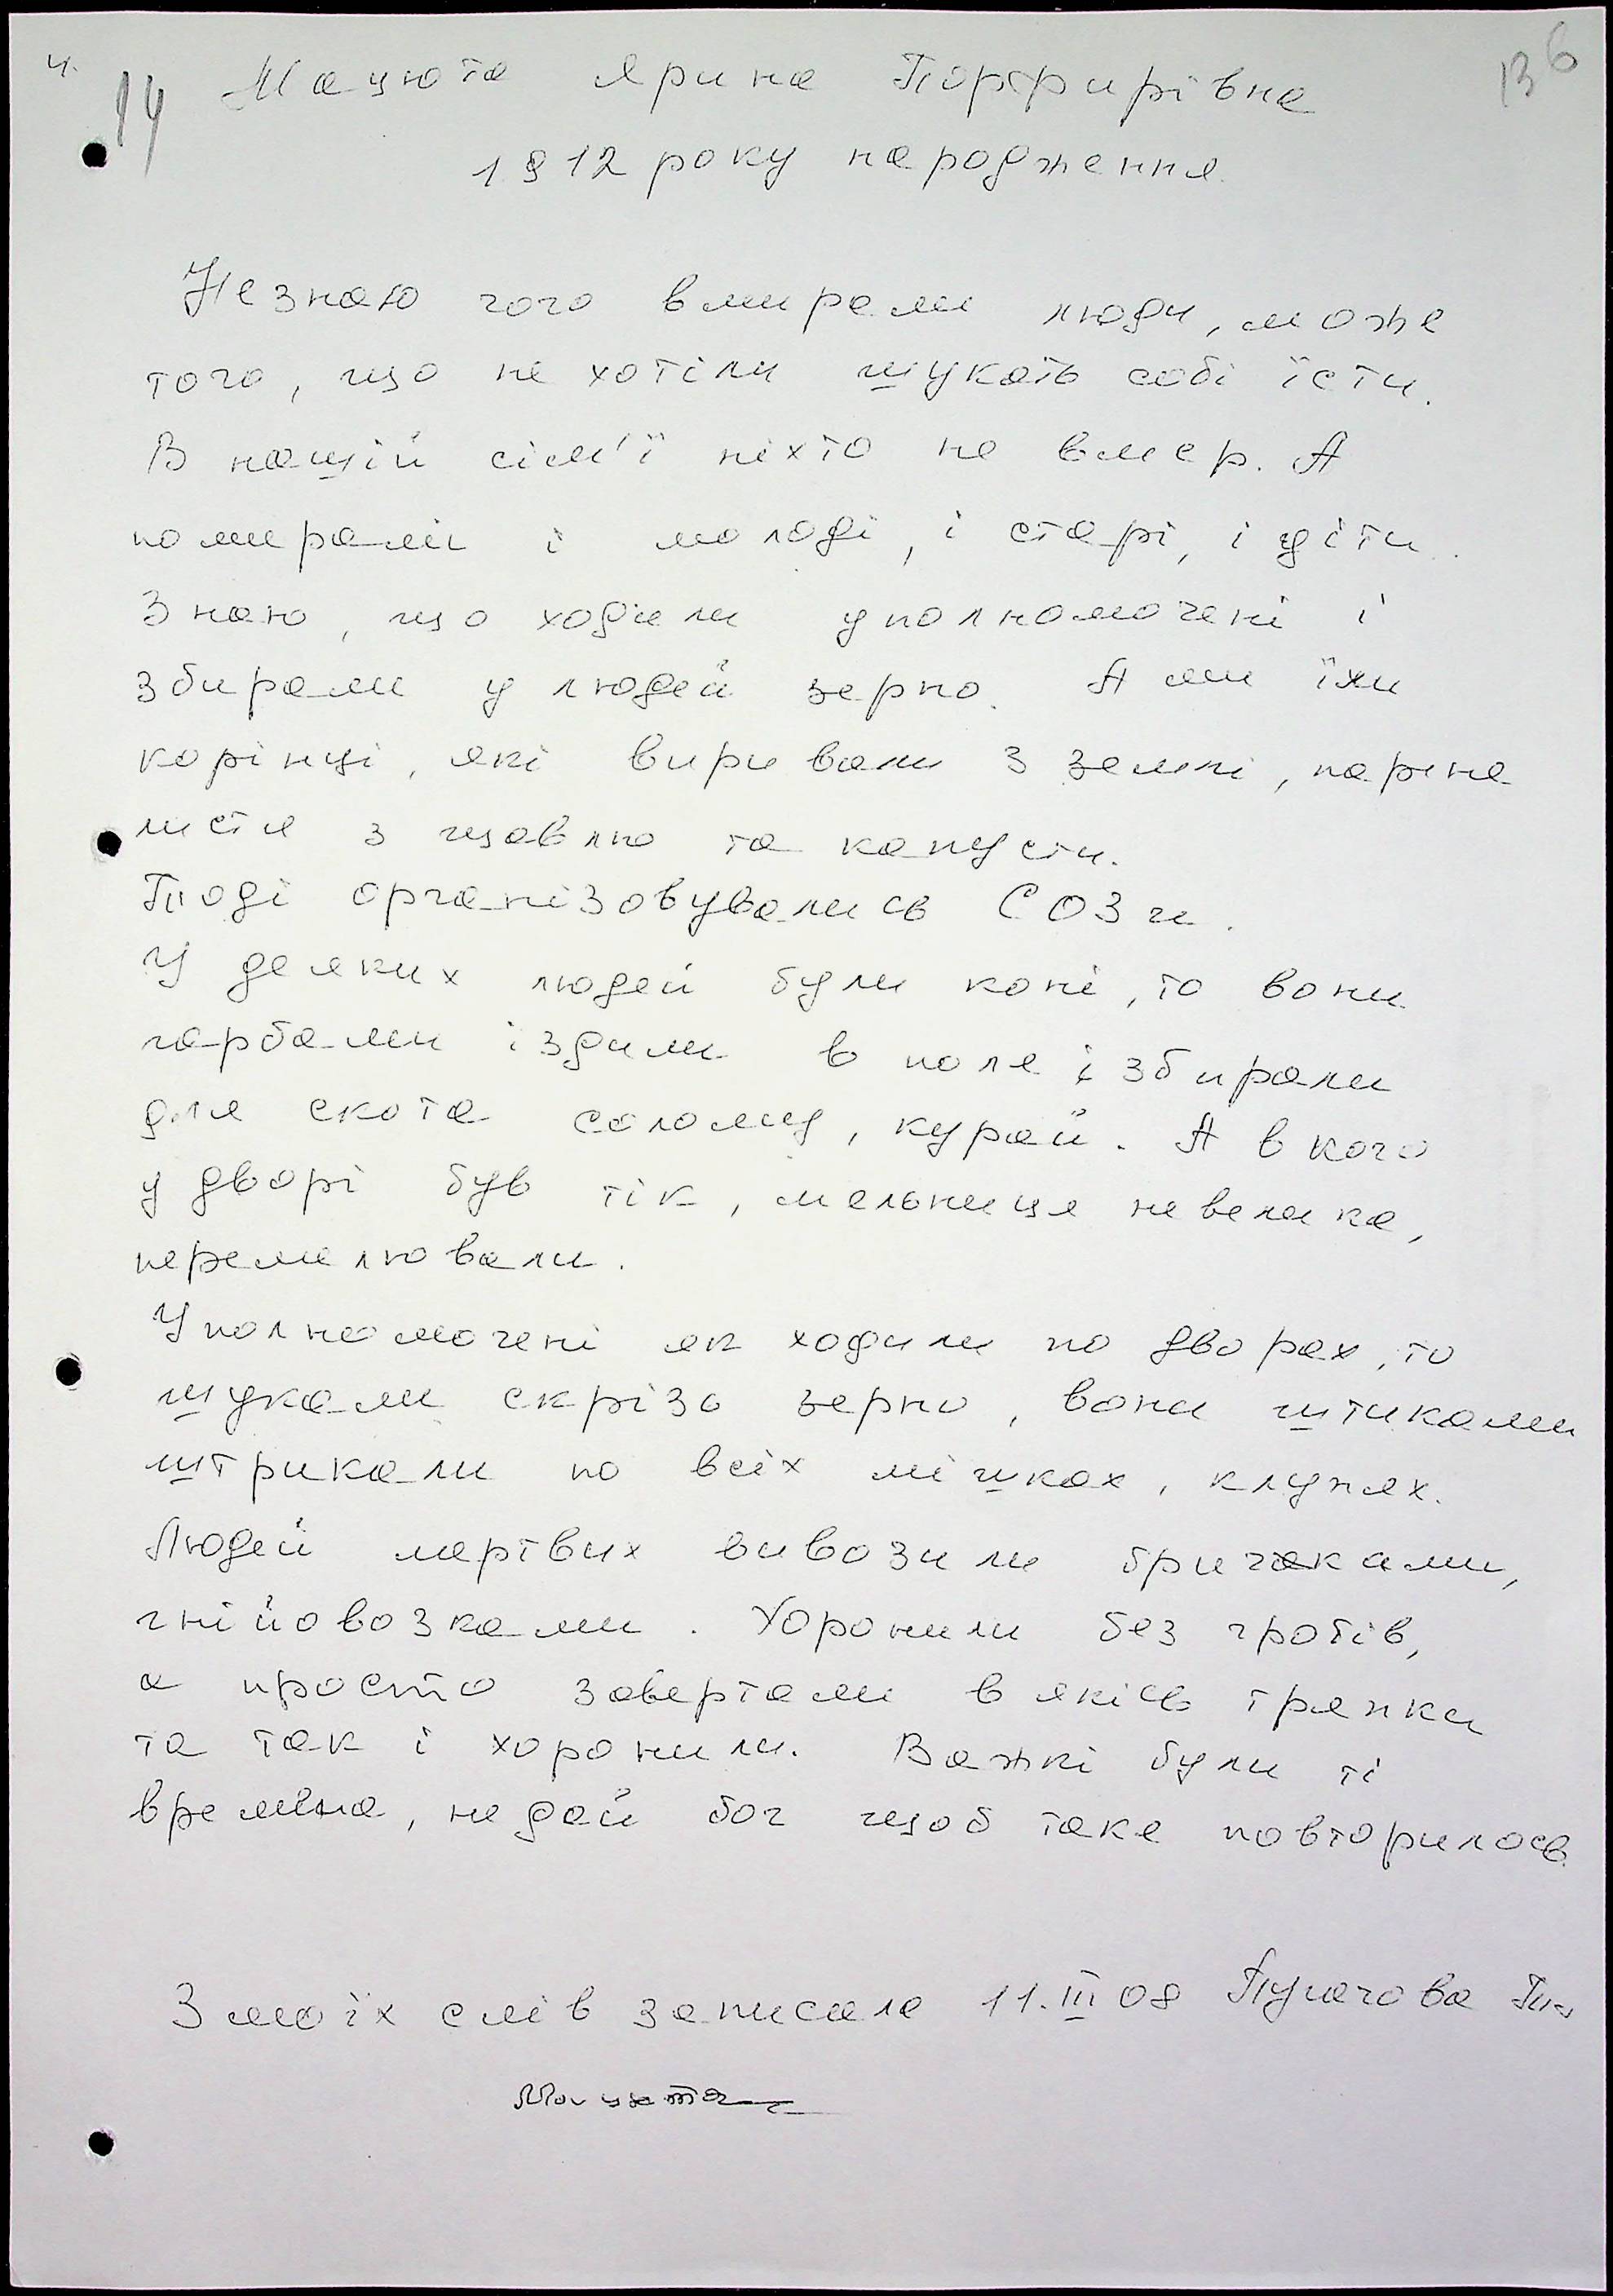 ч. 14 Мацюта Ярина Порфирівна 136
1912 року народження.
Не знаю чого вмирали люди, може
того, що не хотіли шукать собі їсти.
В нашій сім'ї ніхто не вмер. А
помирали і молоді, і старі, і діти.
Знаю, що ходили уполномочені і
збирали у людей зерно. А ми їли
корінці, які виривали з землі, парене
листя з щавлю та капусти.
Тоді організовувались СОЗи.
У деяких людей були коні, то вони
гарбами їздили в поле і збирали
для скота солому, курай. А в кого
у дворі був тік, мельниця невелика,
перемелювали.
Уполномочені як ходили по дворах, то
шукали скрізь зерно, вони штиками
штрикали по всіх мішках, клунях.
Людей мертвих вивозили бричками,
гнійовозками. Хоронили без гробів,
а просто завертали в якісь тряпки
та так і хоронили. Важкі були ті
времена, не дай бог щоб таке повторилось.
З моїх слів записала 11.III 08 Пугачова
Мацюта